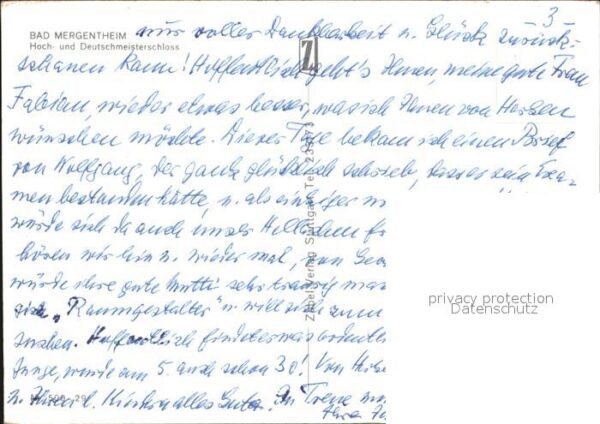 BAD MERGENTHEIM
Hoch- und Deutschmeisterschloss
3
nur voller Dankbarkeit u. Glück zurück-
schauen kann! Hoffentlich geht's Ihnen, meine gute Frau
Fabian, wieder etwas besser, was ich Ihnen von Herzen
wünschen möchte. Dieser Tage bekam ich einen Brief
von Wolfgang, der ganz glücklich schrieb, dass er sein Exa-
men bestanden hätte, u. als einziger
würde sich da auch unser
hören wir hin u. wieder mal, von
würde ihre gute Mutti sehr traurig
sich „Raumgestalter" u. will sich zum
suchen. Hoffentlich findet er was ordentl
Junge, wurde am 5. auch schon 30! Von
u. Ihren l. Kindern alles Gute. In Treue
Ihre
Zobel Verlag Stuttgart Tel.
privacy protection
Datenschutz